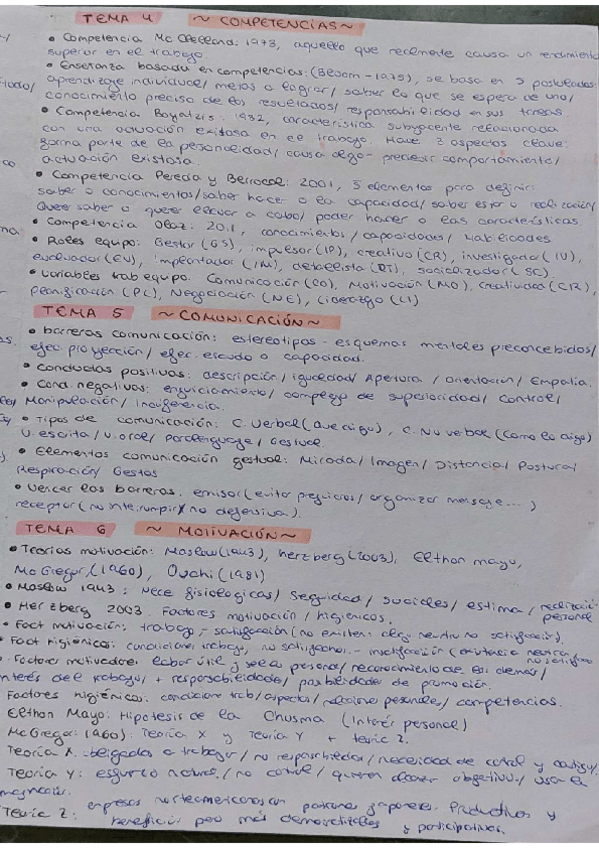 TEMA 4 ~ COMPETENCIAS ~
• Competencia Mc Clelland: 1973, aquello que realmente causa un rendimiento
superior en el trabajo.
• Enseñanza basada en competencias: (Bloom - 1975), se basa en 5 postulados:
aprendizaje individual/ metas a lograr/ saber lo que se espera de uno/
conocimiento preciso de los resultados/ responsabilidad en sus tareas.
• Competencia Boyatzis: 1982, característica subyacente relacionada
con una actuación exitosa en el trabajo. Have 2 aspectos clave:
forma parte de la personalidad/ causa algo - predecir comportamiento/
actuación exitosa.
• Competencia Pereda y Berrocal: 2001, 5 elementos para definir:
saber o conocimientos/ saber hacer o la capacidad/ saber estar o
Querer saber o querer llevar a cabo/ poder hacer o las características.
• Competencia 2011, conocimientos/ capacidades/ habilidades
• Roles equipo: Gestor (GS), impulsor (IP), creativo (CR), investigador (IV),
evaluador (EV), implantador (IM), detallista (DT), socializador (SC).
• Variables trab equipo: Comunicación (CO), Motivación (MO), creatividad (CR),
Planificación (PL), Negociación (NE), Liderazgo (LI)
TEMA 5 ~ COMUNICACIÓN ~
• barreras comunicación: estereotipos - esquemas mentales preconcebidos/
efec. proyección/ efec. escudo o capacidad.
• Conductas positivas: descripción/ igualdad/ Apertura / orientación/ Empatía.
• Cond. negativas: enjuiciamiento/ complejo de superioridad/ control/
Manipulación/ Indiferencia.
• Tipos de comunicación: C. Verbal (que digo), C. No verbal (como lo digo)
V. escrita/ V. oral/ paralenguaje/ Gestual.
• Elementos comunicación gestual: Mirada/ Imagen/ Distancia/ Postural
Respiración/ Gestos
• Vencer las barreras: emisor (evitar prejuicios/ organizar mensaje... )
receptor (no interrumpir/ no defensiva).
TEMA 6 ~ MOTIVACIÓN ~
• Teorías motivación: Maslow (1943), herzberg (2003), Elthon mayo,
Mc Gregor (1960), Ouchi (1981)
• Maslow 1943: Nece fisiologicas/ seguridad/ sociales/ estima/ realización personal
• Herzberg 2003. Factores motivación / higienicos.
• Fact motivación: trabajo, - satisfacción (no existen: neutra no satisfacción).
• Fact higiénicos: condiciones trabajo, no satisfactores. - insatisfacción (neutra no satisfac
• Factores motivadores: labor útil y sea personal/ reconocimiento de los demás/
interés del trabajo/ + responsabilidades/ posibilidades de promoción.
Factores higiénicos: condicione trab/ aspectos/ relaciones personales/ competencias.
Elthon Mayo: Hipotesis de la Chusma (interés personal)
Mc Gregor: 1960): Teoría X y Teoría Y + teoría Z.
Teoría X: obligados a trabajar/ no responsabilidades/ necesidad de control y castigo/
Teoría Y: esfuerzo natural/ no control/ quieren alcanzar objetivos/ usan la
imaginación.
Teoría Z: empresas norteamericanas con patrones japoneses. Productivas y
beneficio pero más democratizadas y participativas.